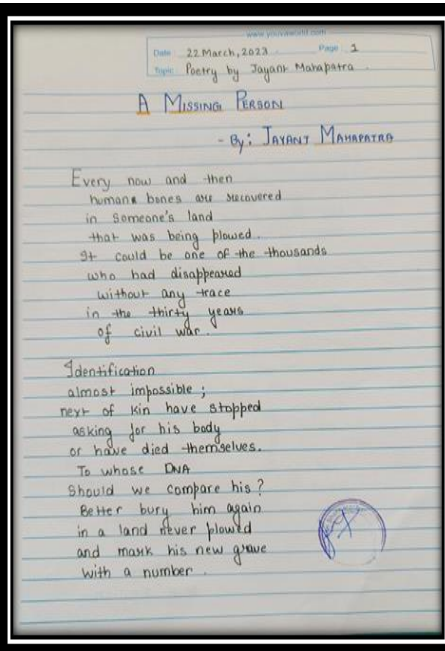 www.youvaworld.com
Date 22 March, 2023 Page 1
Topic Poetry by Jayant Mahapatra
A MISSING PERSON
- By: JAYANT MAHAPATRA
Every now and then
human bones are recovered
in someone's land
that was being plowed.
It could be one of the thousands
who had disappeared
without any trace
in the thirty years
of civil war.
Identification
almost impossible;
next of kin have stopped
asking for his body
or have died themselves.
To whose DNA
Should we compare his?
Better bury him again
in a land never plowed
and mark his new grave
with a number.